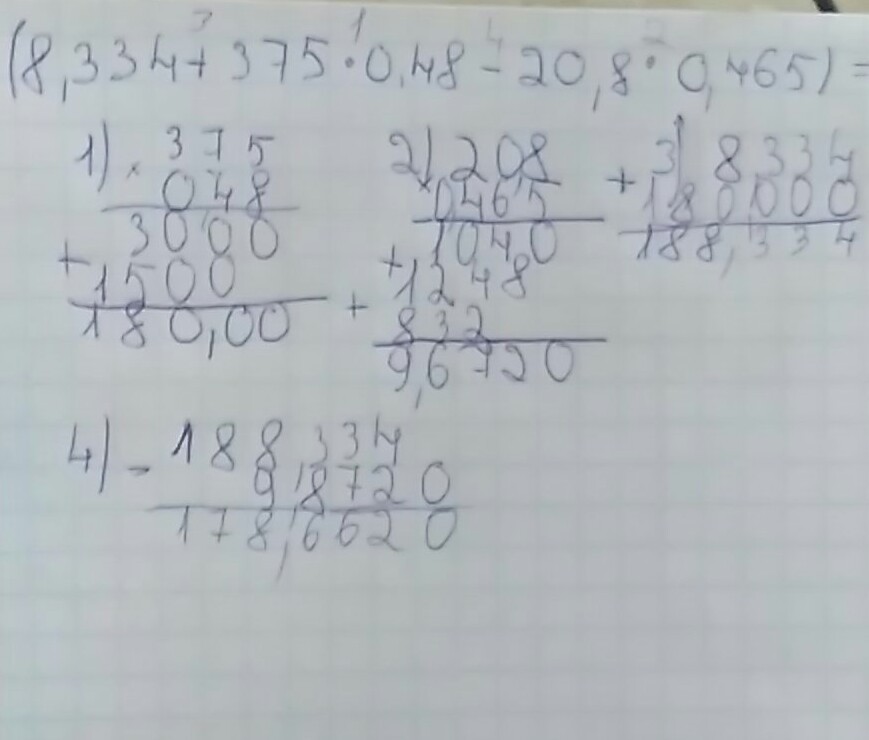 3 1 4 2
(8,334+375·0,48-20,8·0,465)=
1) × 375
048
3000
+ 1500
180,00
2) × 208
0465
1040
+ 1248
+ 832
9,6720
3) 8,334
+ 180,000
188,334
4) - 188,334
9,8720
178,6620